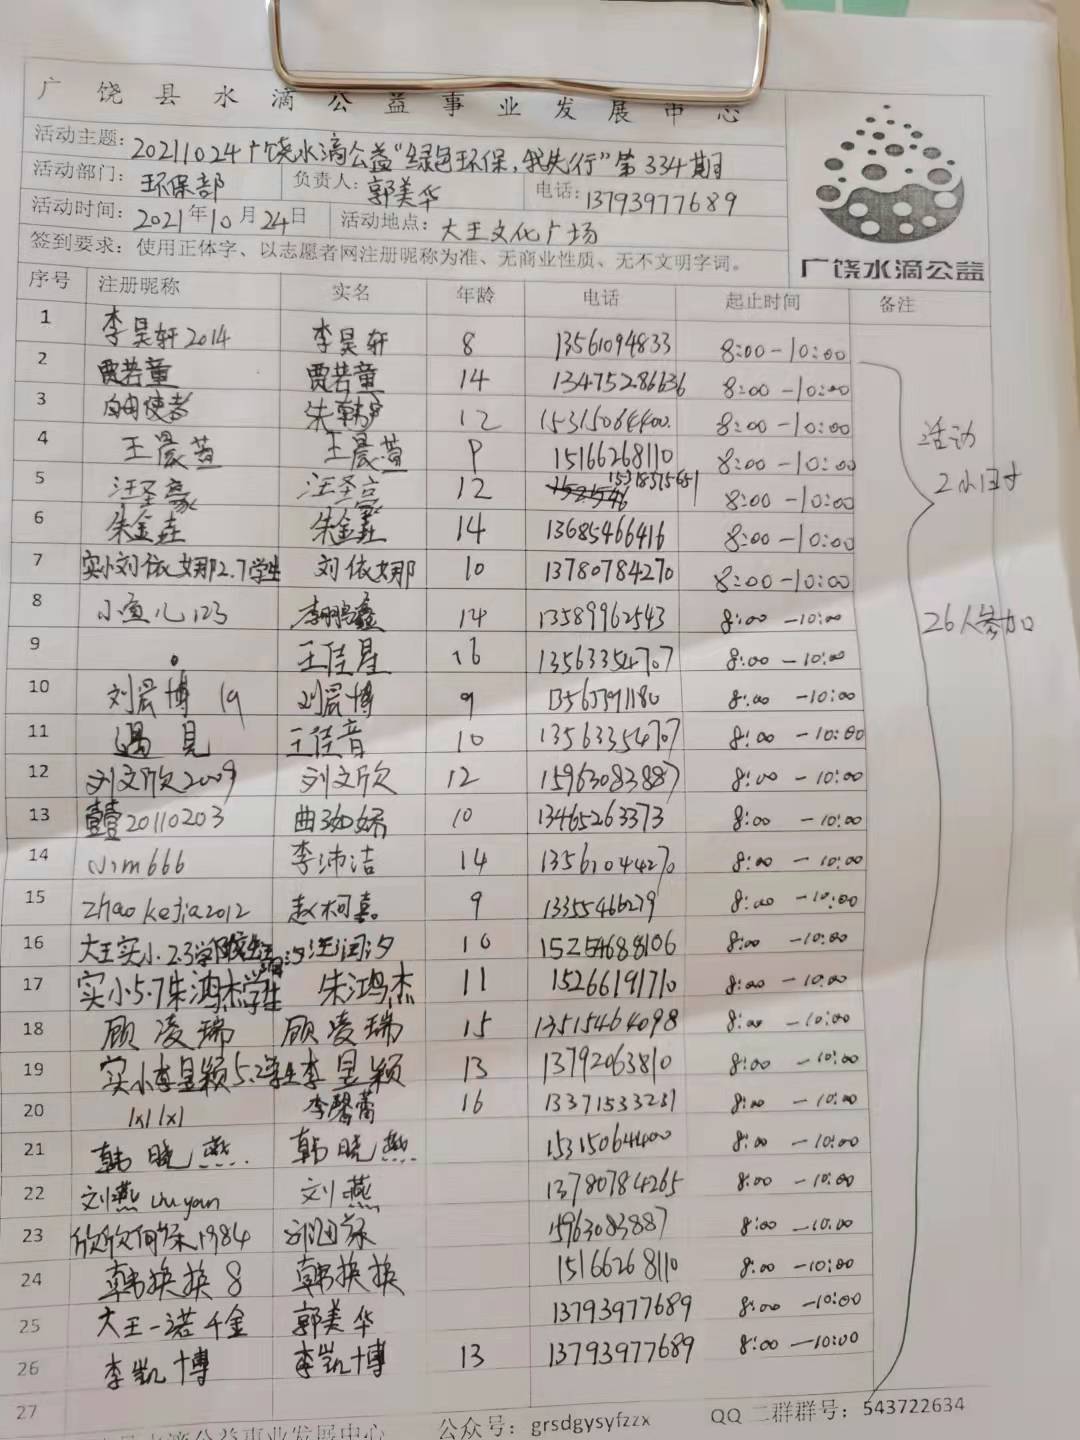 广饶县水滴公益事业发展中心
活动主题：20211024广饶水滴公益"绿色环保，我先行"第334期
活动部门：环保部 负责人：郭美华 电话：13793977689
活动时间：2021年10月24日 活动地点：大王文化广场
签到要求：使用正体字、以志愿者网注册昵称为准、无商业性质、无不文明字词。
广饶水滴公益
序号 注册昵称 实名 年龄 电话 起止时间 备注
1 李昊轩2014 李昊轩 8 13561094833 8:00-10:00
2 贾若童 贾若童 14 13475286636 8:00-10:00
3 使者 朱 12 15315064400 8:00-10:00
4 王晨萱 王晨萱 9 15166268110 8:00-10:00
活动
2小时
5 汪圣豪 汪圣豪 12 8:00-10:00
6 朱金垚 朱金垚 14 13685466416 8:00-10:00
7 实小刘依娜2.7学生 刘依娜 10 13780784270 8:00-10:00
8 小鱼儿123 李鹏鑫 14 13589962543 8:00-10:00
26人参加
9 。 王佳星 16 13563354707 8:00-10:00
10 刘宸博19 刘宸博 9 8:00-10:00
11 遇见 王佳音 10 13563354707 8:00-10:00
12 刘文欣2009 刘文欣 12 15963083887 8:00-10:00
13 20110203 曲 10 13465263373 8:00-10:00
14 666 李沛洁 14 13561044270 8:00-10:00
15 zhaokejia2012 赵柯嘉 9 13355466279 8:00-10:00
16 大王实小2.3学 汪润汐 10 15254688106 8:00-10:00
17 实小5.7朱鸿杰学生 朱鸿杰 11 15266191710 8:00-10:00
18 顾凌瑞 顾凌瑞 15 13515464098 8:00-10:00
19 实小李昱颖5.2学生 李昱颖 13 13792063810 8:00-10:00
20 lxllxl 李馨蕾 16 13371533231 8:00-10:00
21 韩晓燕 韩晓燕 15315064400 8:00-10:00
22 刘燕liuyan 刘燕 13780784265 8:00-10:00
23 欣欣向荣1984 15963083887 8:00-10:00
24 韩换换8 韩换换 15166268110 8:00-10:00
25 大王一诺千金 郭美华 13793977689 8:00-10:00
26 李凯博 李凯博 13 13793977689 8:00-10:00
27
水滴公益事业发展中心 公众号：grsdgysyfzzx QQ二群群号：543722634